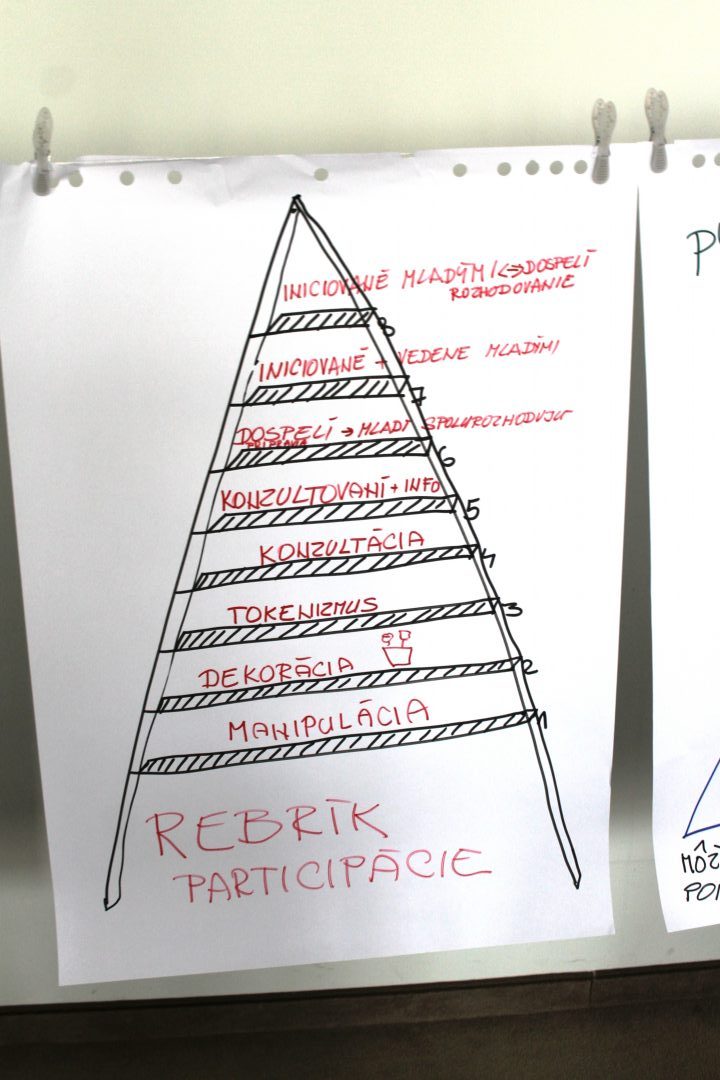 INICIOVANÉ MLADÝMI <-> DOSPELÍ
ROZHODOVANIE
8
INICIOVANÉ + VEDENE MLADÍMI
7
DOSPELÍ → MLADÍ SPOLUROZHODUJÚ
PRIPRAVIA
6
KONZULTOVANÍ + INFO
5
KONZULTÁCIA
4
TOKENIZMUS
3
DEKORÁCIA
2
MANIPULÁCIA
1
REBRÍK
PARTICIPÁCIE
P
MÔŽ